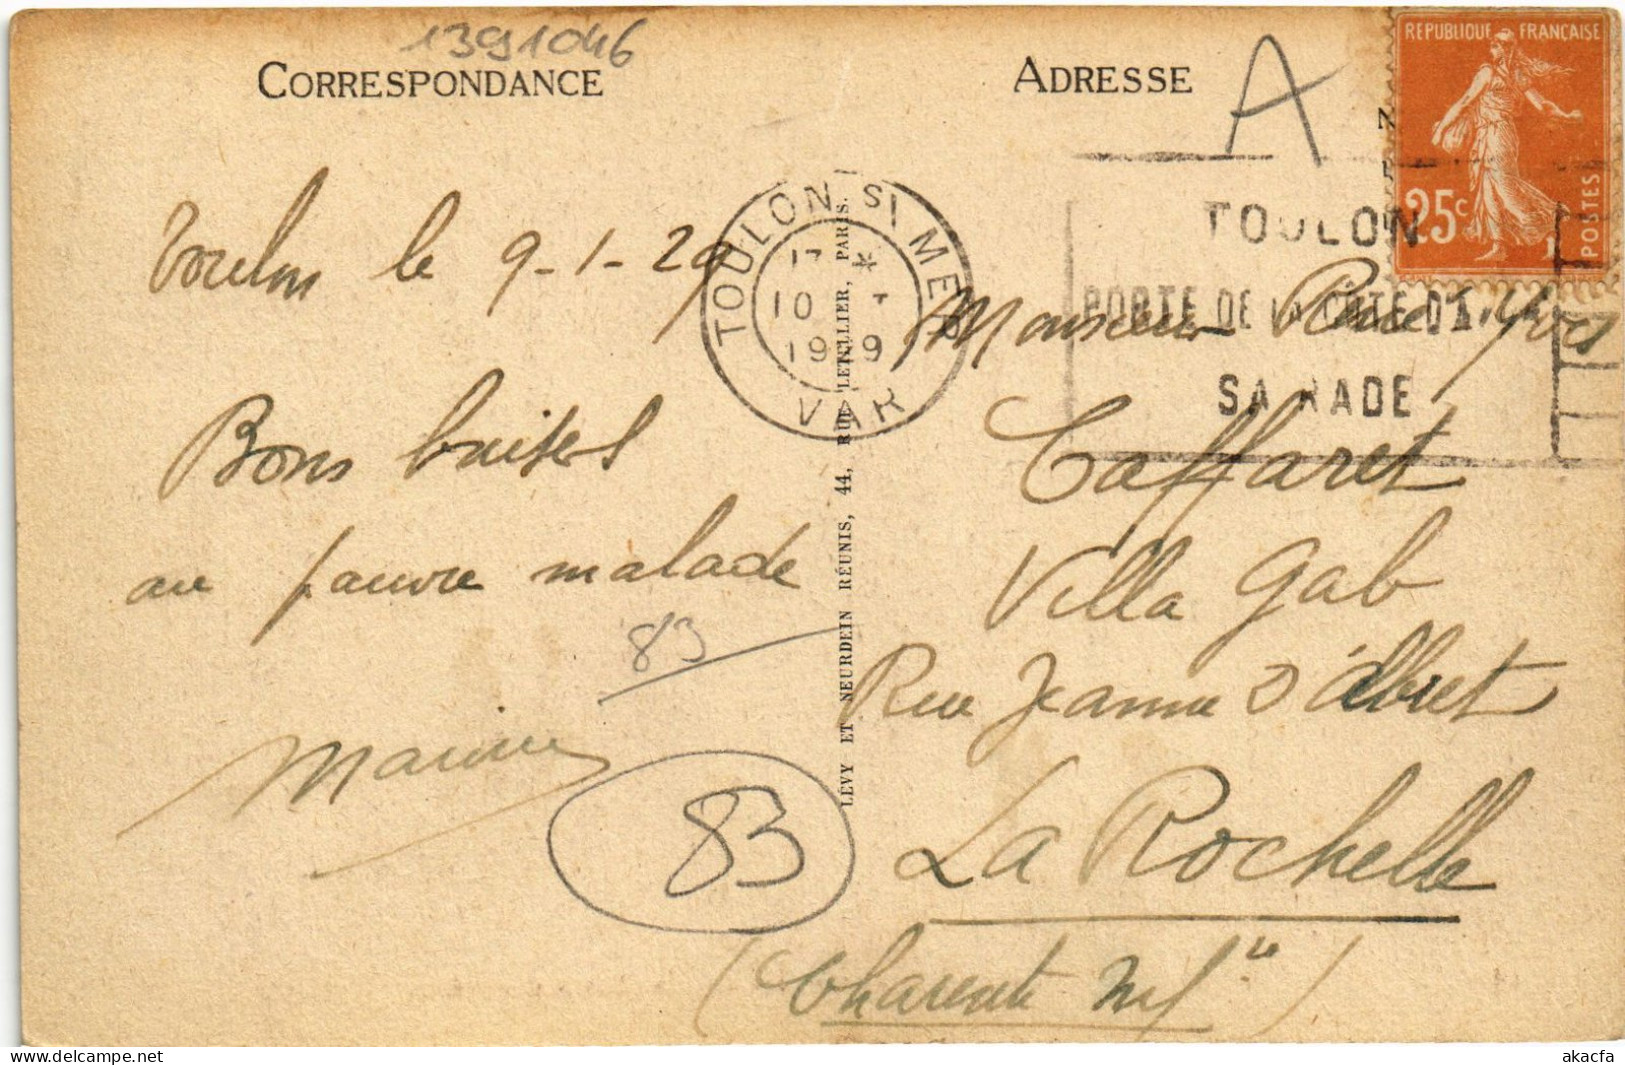 1391046
CORRESPONDANCE
Toulon le 9-1-29
Bons baisers
au pauvre malade
83
83
LÉVY ET NEURDEIN RÉUNIS, 44, RUE LETELLIER, PARIS.
TOULON SI MER
17 *
10
1929
VAR
ADRESSE
A
REPUBLIQUE FRANÇAISE
25c
POSTES
TOULON
PORTE DE LA CÔTE D'AZUR
SA RADE
Monsieur Yves
Caffaret
Villa Gab
Rue Jeanne D'Albret
La Rochelle
(Charente Infre)
akacfa